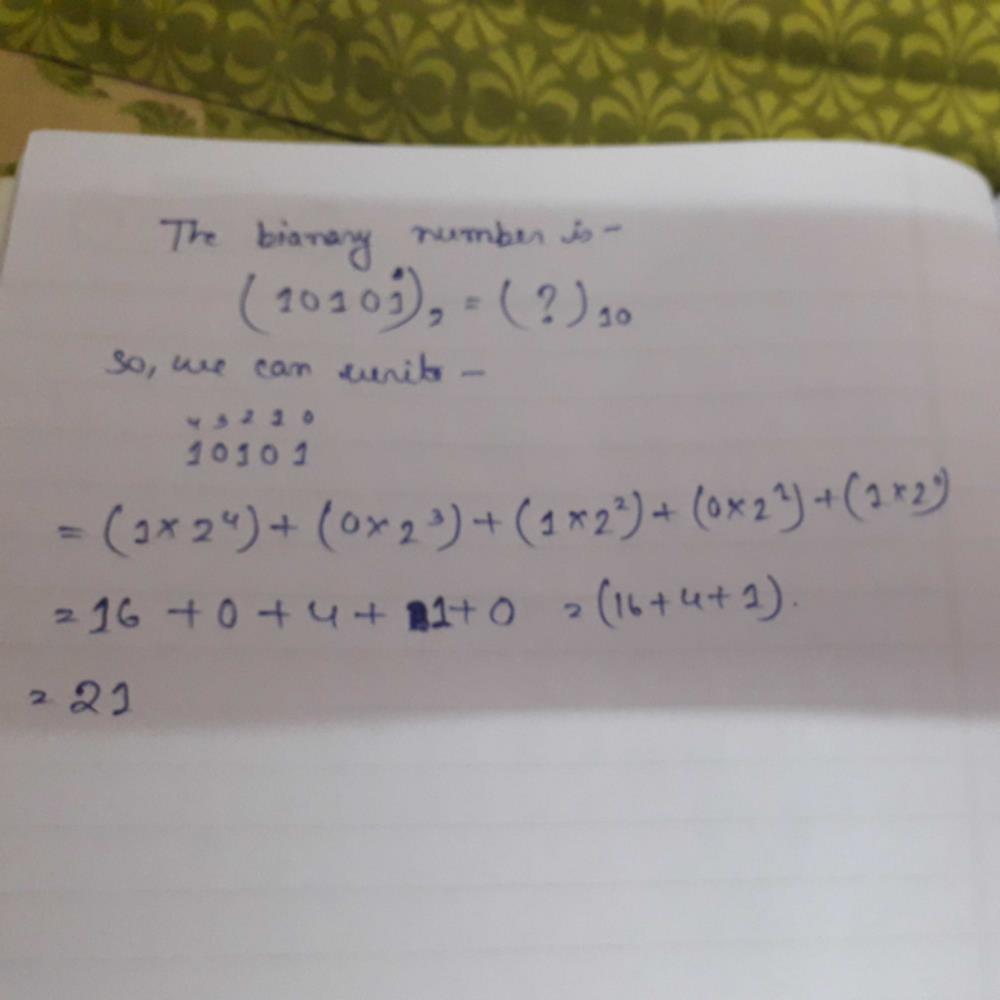 The bianary number is -
(10101)₂ = (?)₁₀
So, we can write -
4 3 2 1 0
10101
= (1×2⁴) + (0×2³) + (1×2²) + (0×2¹) + (1×2⁰)
= 16 + 0 + 4 + 1 + 0 = (16+4+1).
= 21